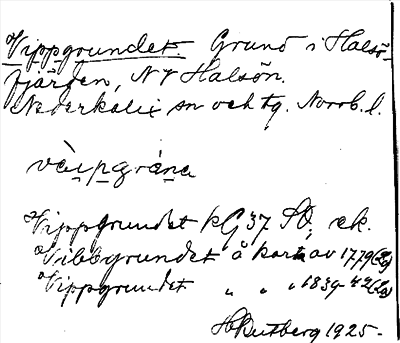 Vippgrundet. Grund i Halsö-
fjärden, NV Halsön.
Nederkalix sn och tg. Norrb. l.
vài̯pgrána
Vippgrundet kG 37 SO, ek.
Vibbgrundet å karta av 1779 (Lg)
Vippgrundet " " " 1839-42 (Lg)
H Rutberg 1925.